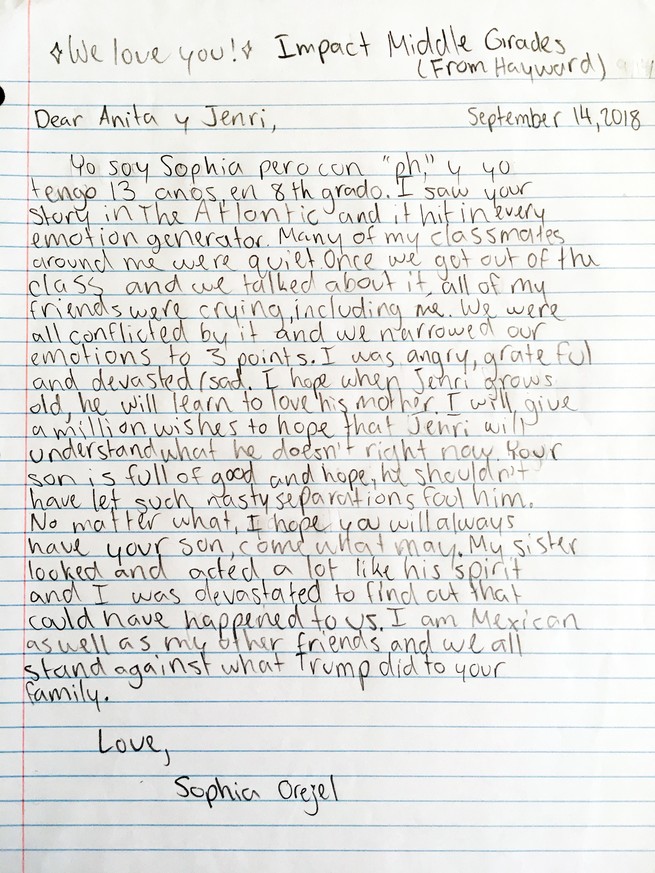 ✧We love you!✧ Impact Middle Grades
(From Hayward)
Dear Anita y Jenri, September 14, 2018
Yo soy Sophia pero con "ph," y yo
tengo 13 anos, en 8th grado. I saw your
story in The Atlantic and it hit in every
emotion generator. Many of my classmates
around me were quiet. Once we got out of the
class and we talked about it, all of my
friends were crying, including me. We were
all conflicted by it and we narrowed our
emotions to 3 points. I was angry, grateful
and devasted/sad. I hope when Jenri grows
old, he will learn to love his mother. I will give
a million wishes to hope that Jenri will
understand what he doesn't right now. Your
son is full of good and hope, he shouldn't
have let such nasty separations foul him.
No matter what, I hope you will always
have your son, come what may. My sister
looked and acted a lot like his spirit
and I was devastated to find out that
could have happened to us. I am Mexican
as well as my other friends and we all
stand against what Trump did to your
family.
Love,
Sophia Orejel